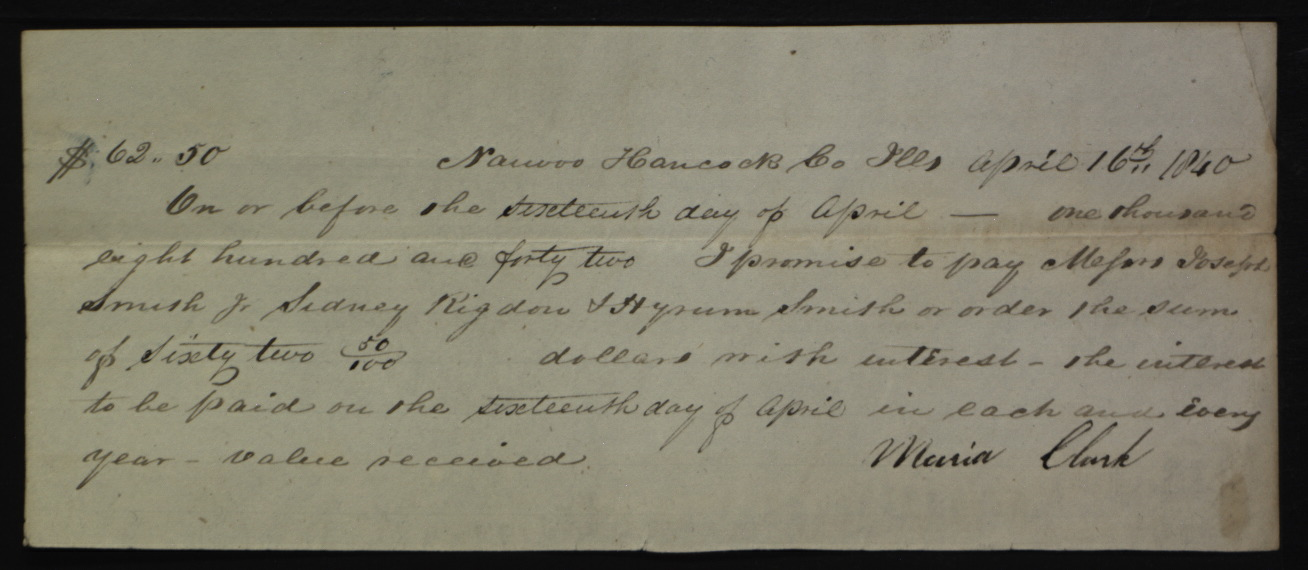 $ 62.. 50 Nauvoo Hancock Co Ills April 16th 1840
On or before the sixteenth day of April — one thousand
eight hundred and forty two I promise to pay Messrs Joseph
Smith Jr Sidney Rigdon & Hyrum Smith or order the sum
of sixty two 50/100 dollars with interest - the interest
to be paid on the sixteenth day of April in each and every
year - value received
Maria Clark